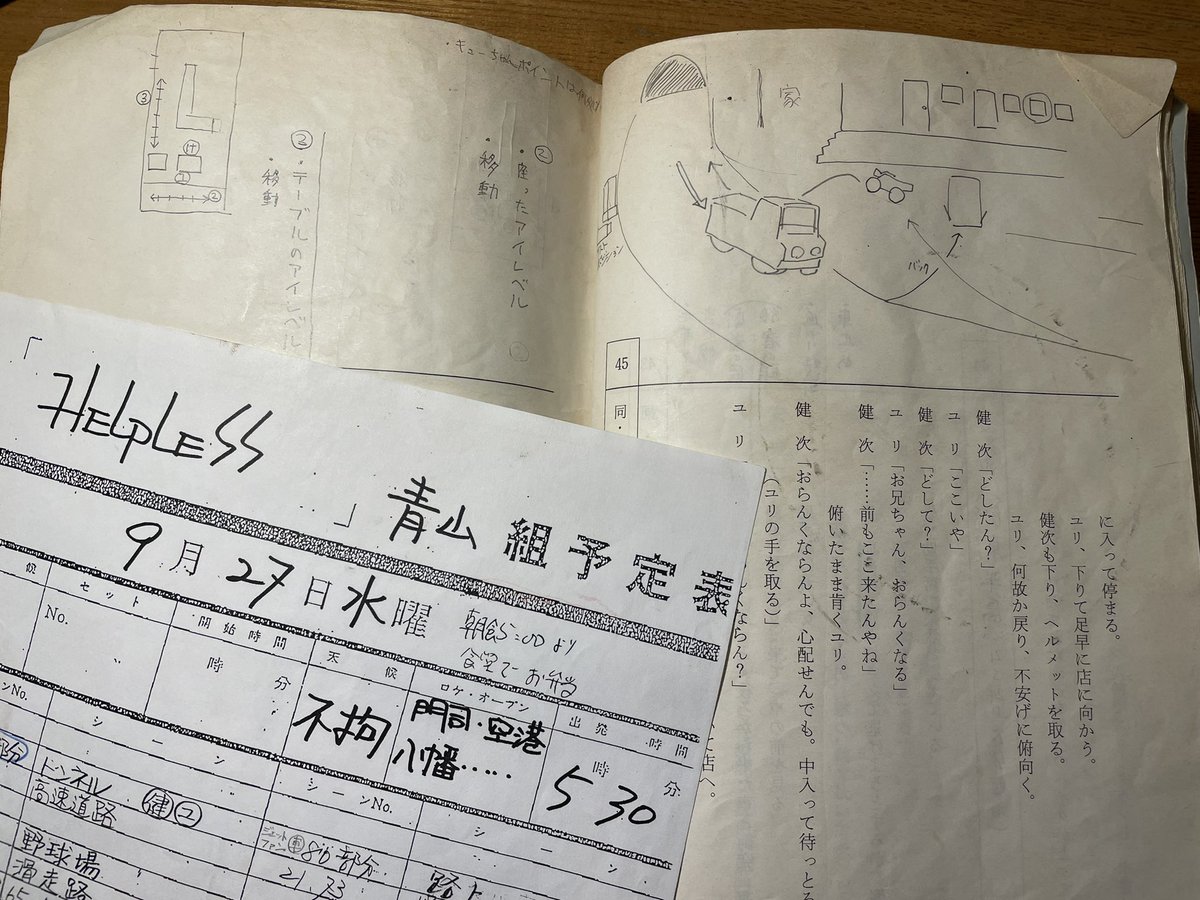 家
バック
45
同・
に入って停まる。
ユリ、下りて足早に店に向かう。
健次も下り、ヘルメットを取る。
ユリ、何故か戻り、不安げに俯向く。
健 次「どしたん？」
ユ リ「ここいや」
健 次「どして？」
ユ リ「お兄ちゃん、おらんくなる」
健 次「……前もここ来たんやね」
俯いたまま肯くユリ。
健 次「おらんくならんよ、心配せんでも。中入って待っとる
（ユリの手を取る）」
ユ リ
くならん？」
店へ。
・キューちゃんポイントは
②
・座ったアイレベル
・移動
③・テーブルのアイレベル
・移動
③
②
「HELPLESS」青山組予定表
9月27日水曜
朝食5:00より
食堂でお弁当
候
セット
開始時間
天候
ロケ・オープン
出発時間
No.
時 分
不拘
門司・空港
八幡……
5時30分
ンNo.
シーン
シーンNo.
シーン
部分
トンネル
高速道路
健 ユ
86部分
野球場
滑走路
21.23
路上